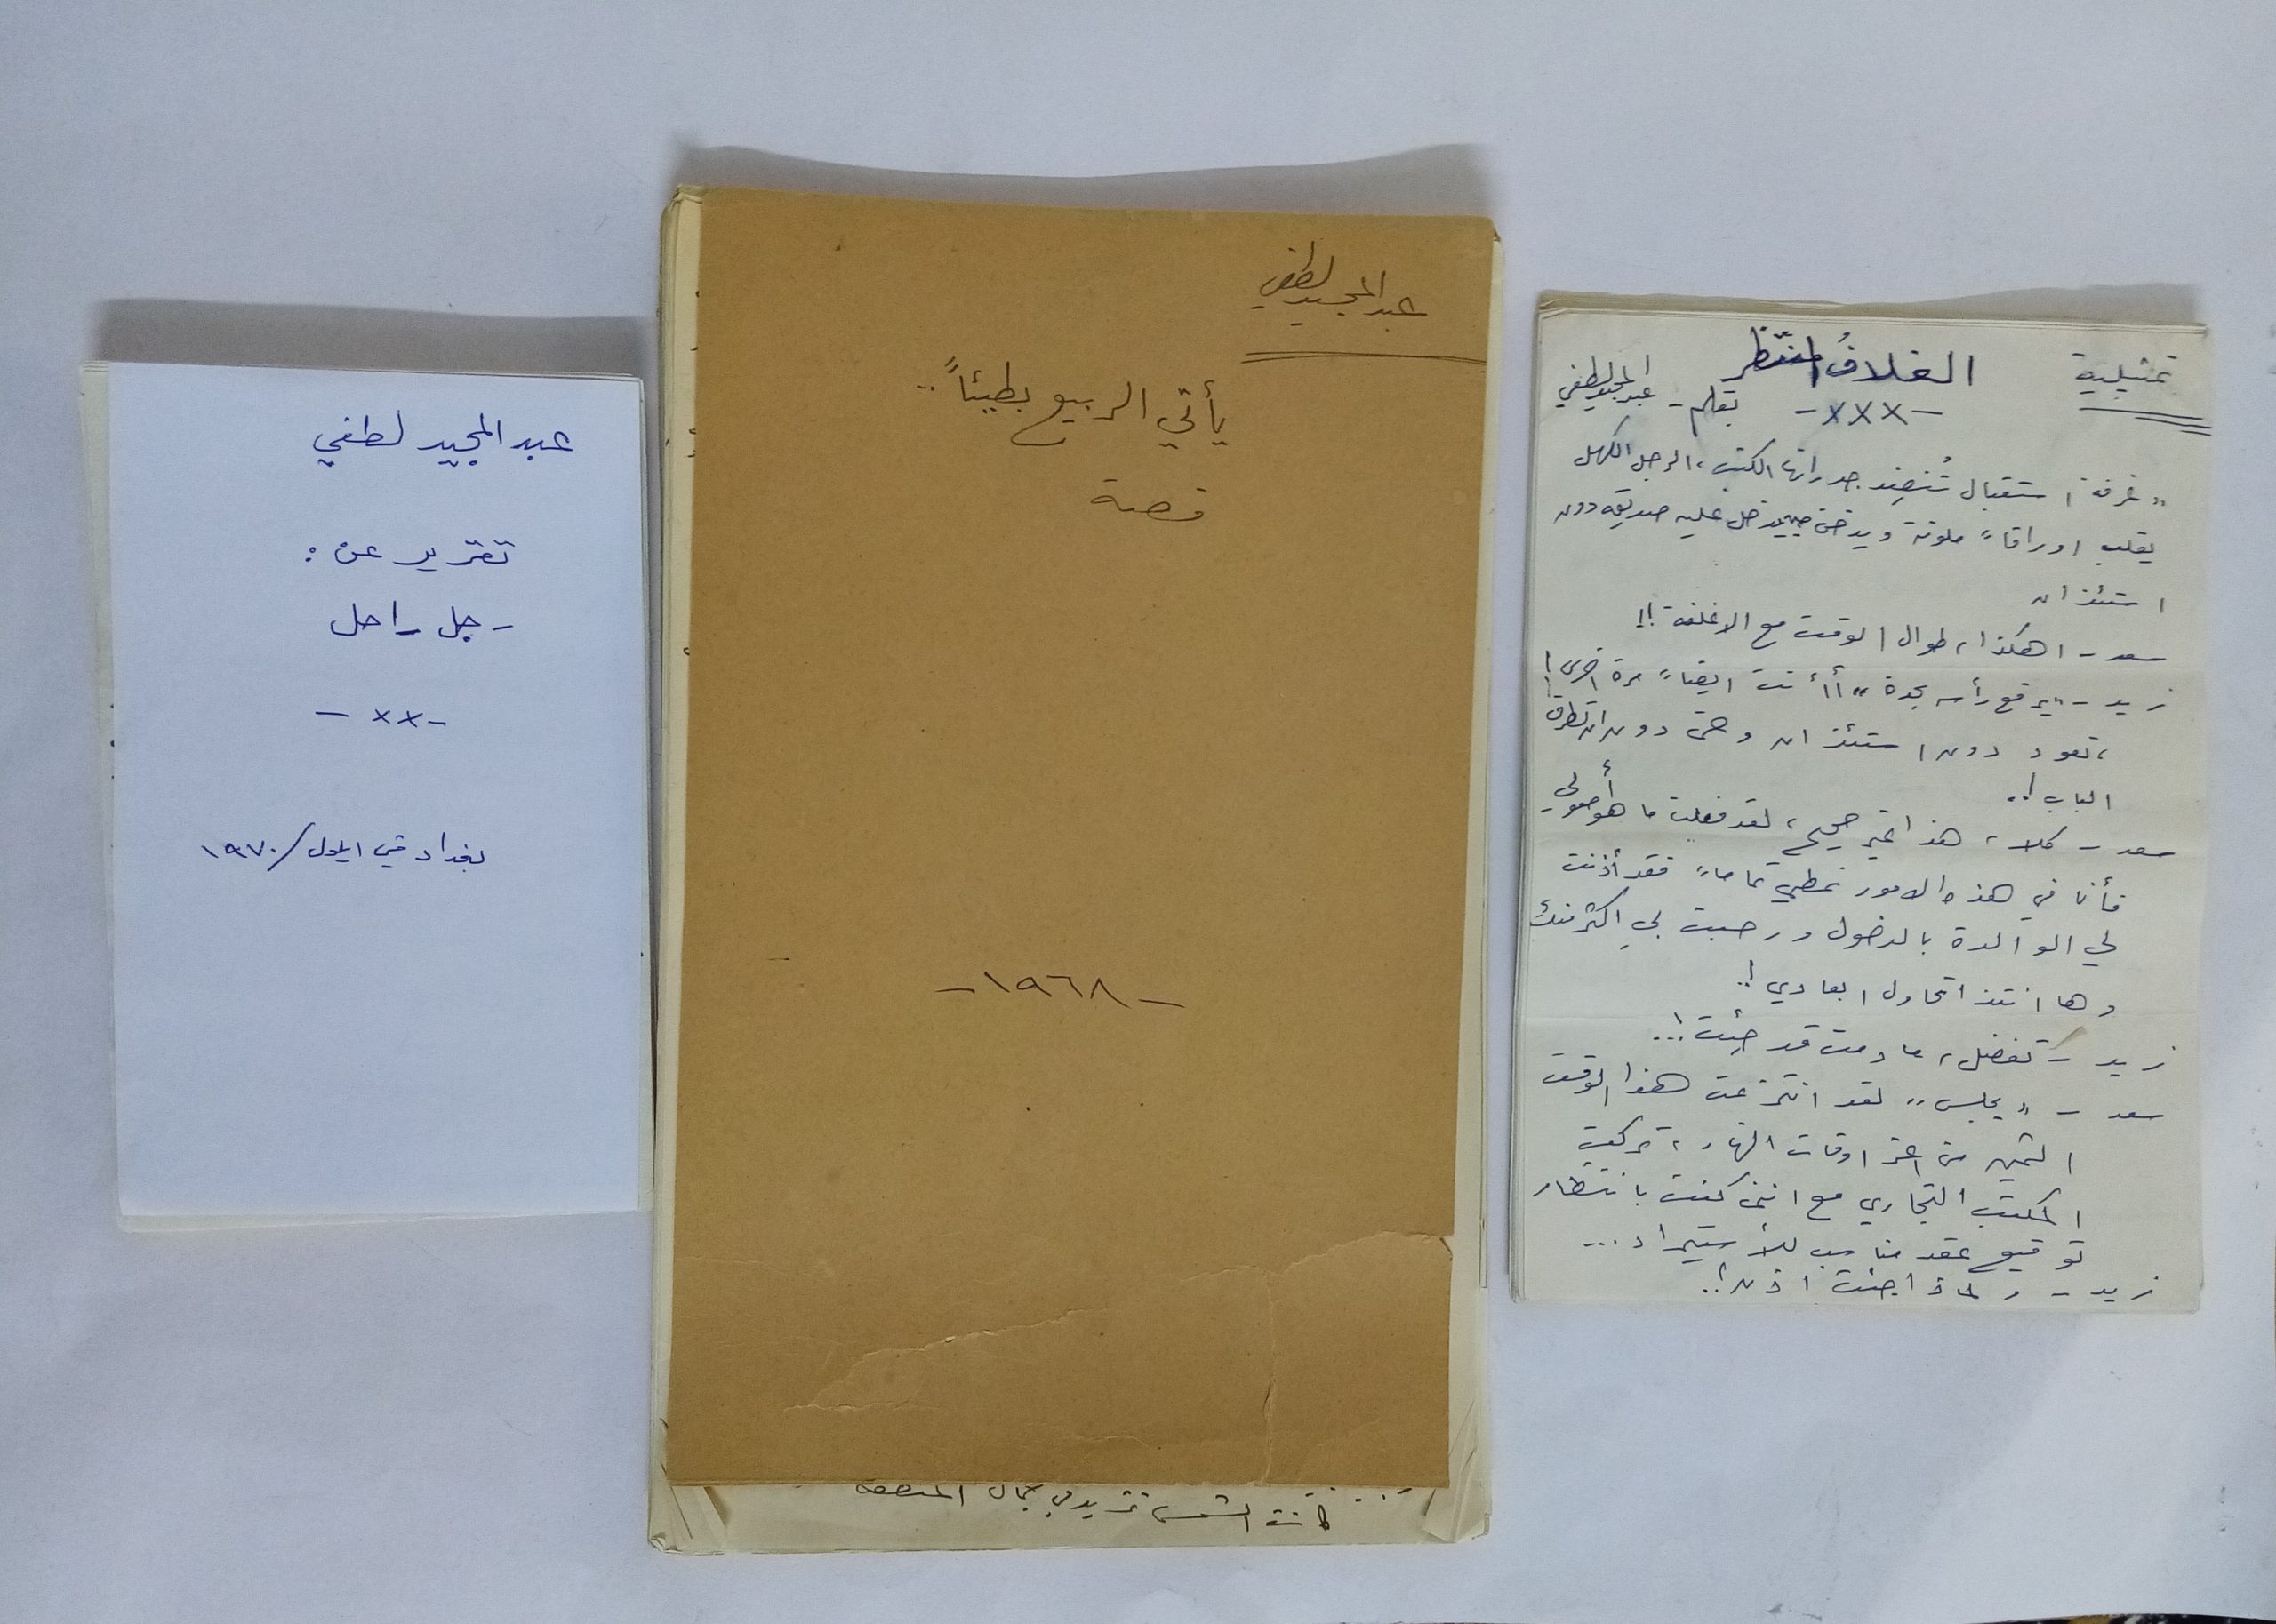 عبد المجيد لطفي
تقرير عن :
رجل راحل
- x x -
بغداد في ايلول / ١٩٧٠
عبد المجيد لطفي
يأتي الربيع بطيئاً ..
قصة
- ١٩٦٨ -
كانت الشمس تزيد في جمال المنطقة
تمثيلية
الغلاف المنتظر
- x x x -
بقلم - عبد المجيد لطفي
" غرفة استقبال تُنضِد جدرانها الكتب ، الرجل الكهل
يقلب اوراقاً ملونة ويدخن حين يدخل عليه صديقه دون
استئذان
سعد - اهكذا ، طوال الوقت مع الاغلفة !!
زيد - " يرفع رأسه بحدة " أأنت ايضاً مرة اخرى !
، تعود دون استئذان وحتى دون ان تطرق
الباب !..
سعد - كلا ، هذا غير صحيح ، لقد فعلت ما هو أصولي
فأنا في هذه الامور نمطي تماماً فقد أذنت
لي الوالدة بالدخول ورحبت بي اكثر منك
وها انتذا تحاول ابعادي !..
زيد - تفضل ، ما دمت قد جئت !...
سعد - " يجلس " لقد انتزعت هذا الوقت
الثمين من اعز اوقات النهار ، تركت
المكتب التجاري مع انني كنت بانتظار
توقيع عقد مناسب للأستيراد ...
زيد - ولماذا جئت اذن !..